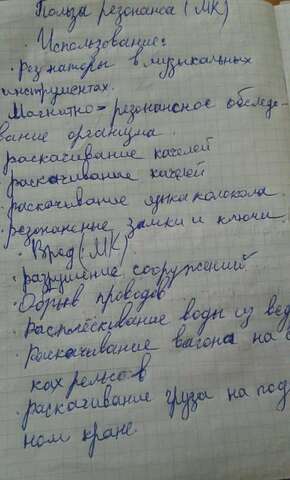 Польза резонанса (МК)
· Использование:
· рез наторы в музыкальных
инструментах.
Магнитно-резонансное обследо-
вание организма
· раскачивание качелей
· раскачивание качелей
· раскачивание языка колокола
· резонансные замки и ключи.
· Вред (МК)
· разрушение сооружений
· Обрыв проводов
· Расплёскивание воды из вед
· Раскачивание вагона на с
ках рельсов
· раскачивание груза на под
ном кране